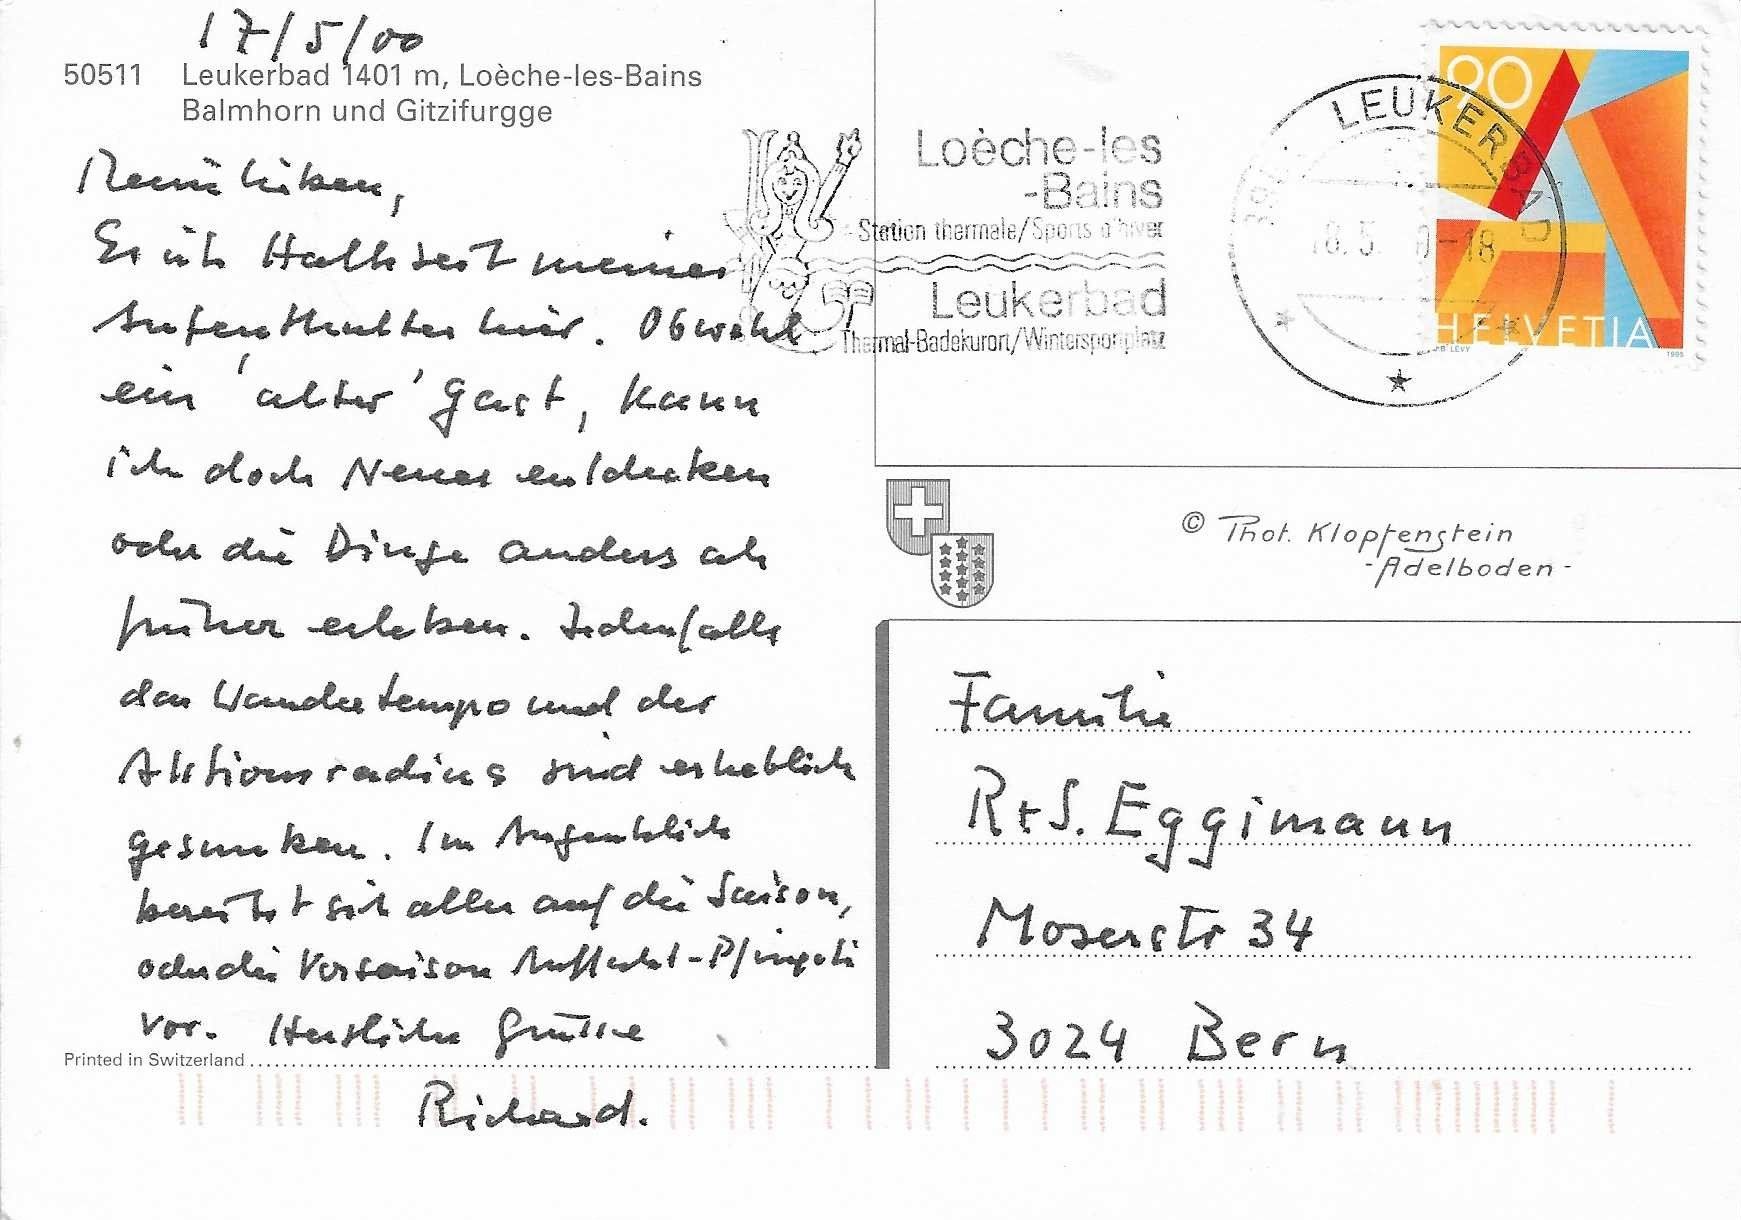 17/5/00
50511 Leukerbad 1401 m, Loèche-les-Bains
Balmhorn und Gitzifurgge
Meine Lieben,
Es ist Halbzeit meines
Aufenthaltes hier. Obwohl
ein 'alter' Gast, kann
ich doch Neues entdecken
oder die Dinge anders als
früher erleben. Jedenfalls
das Wandertempo und der
Aktionsradius sind erheblich
gesunken. Im Augenblick
bereitet sich alles auf die Saison,
oder die Vorsaison Auffahrt-Pfingsten
vor. Herzliche Grüsse
Richard.
Printed in Switzerland
Loèche-les
-Bains
Station thermale/Sports d'hiver
Leukerbad
Thermal-Badekurort/Wintersportplatz
LEUKERBAD
18.5. -18
90
HELVETIA
B. LEVY 1995
© Phot. Klopfenstein
-Adelboden-
Familie
R+S. Eggimann
Moserstr 34
3024 Bern